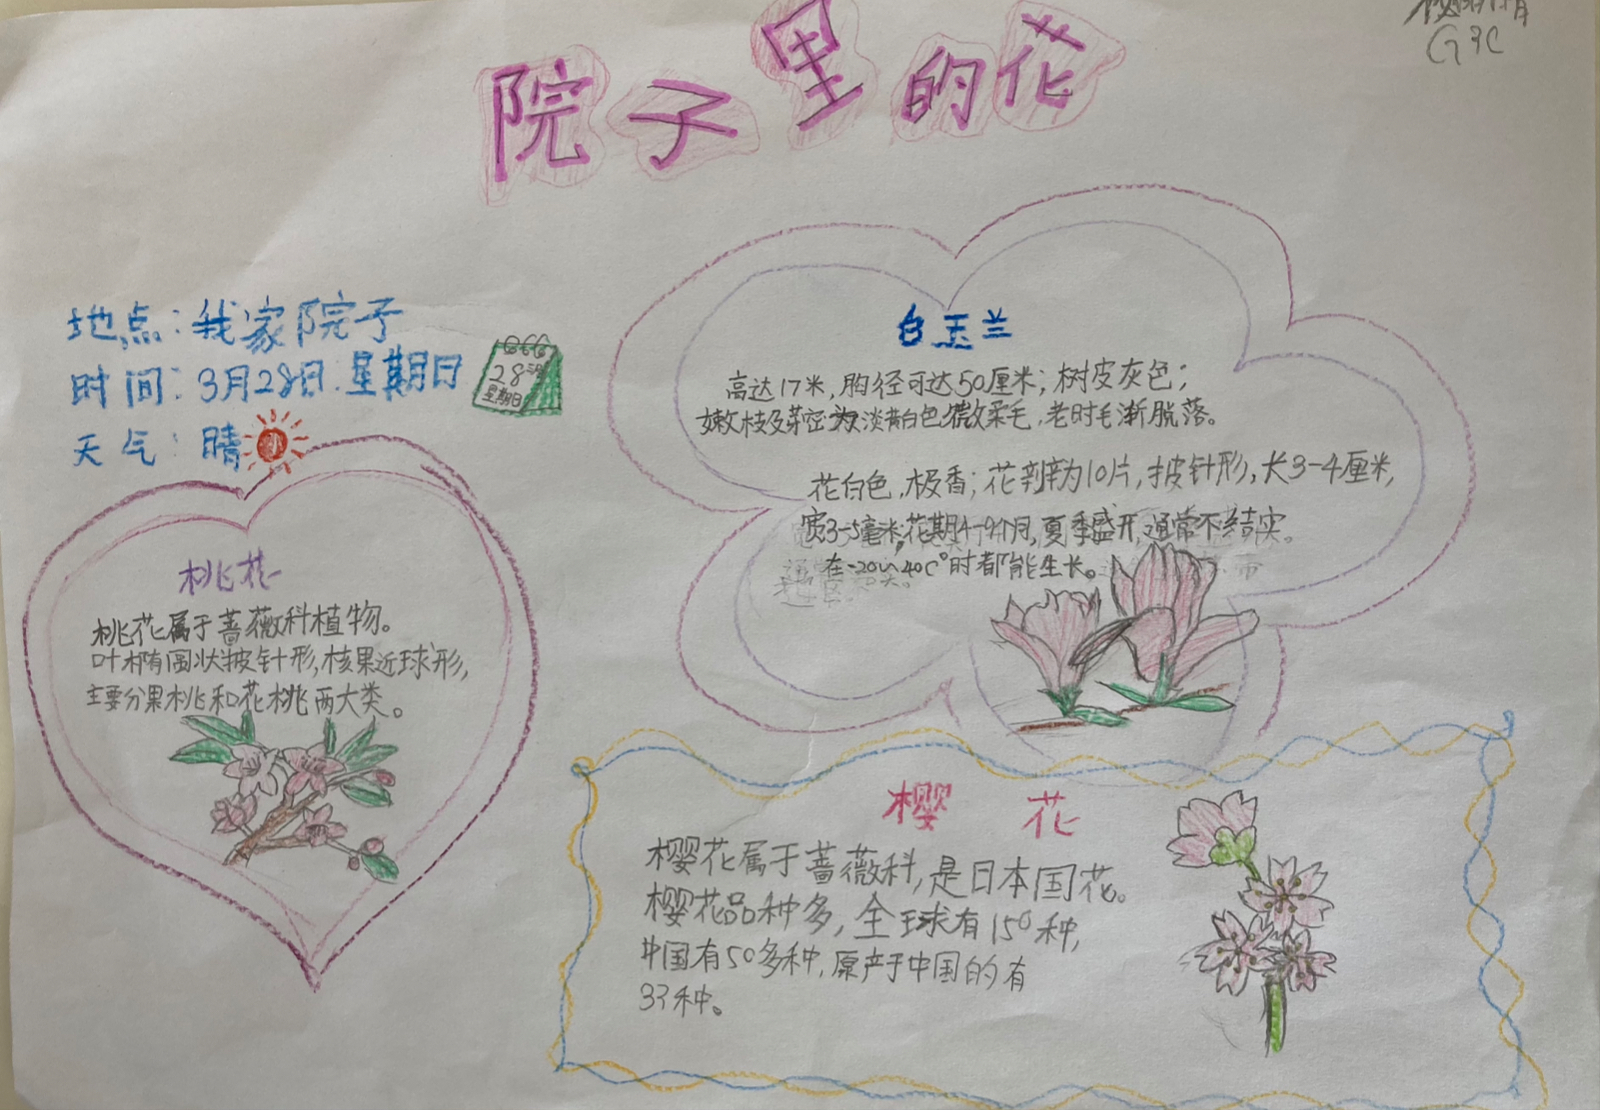 院子里的花
G3C
地点：我家院子
时间：3月28日.星期日
28 三月
星期日
天气：晴
白玉兰
高达17米，胸径可达50厘米；树皮灰色；
嫩枝及芽密为淡黄白色微柔毛，老时毛渐脱落。
花白色，极香；花瓣为10片，披针形，长3-4厘米，
宽3-5毫米；花期4-9个月，夏季盛开，通常不结实。
在-20～40C°时都能生长。
桃花
桃花属于蔷薇科植物。
叶椭圆状披针形，核果近球形，
主要分果桃和花桃两大类。
樱 花
樱花属于蔷薇科，是日本国花。
樱花品种多，全球有150种，
中国有50多种，原产于中国的有
33种。